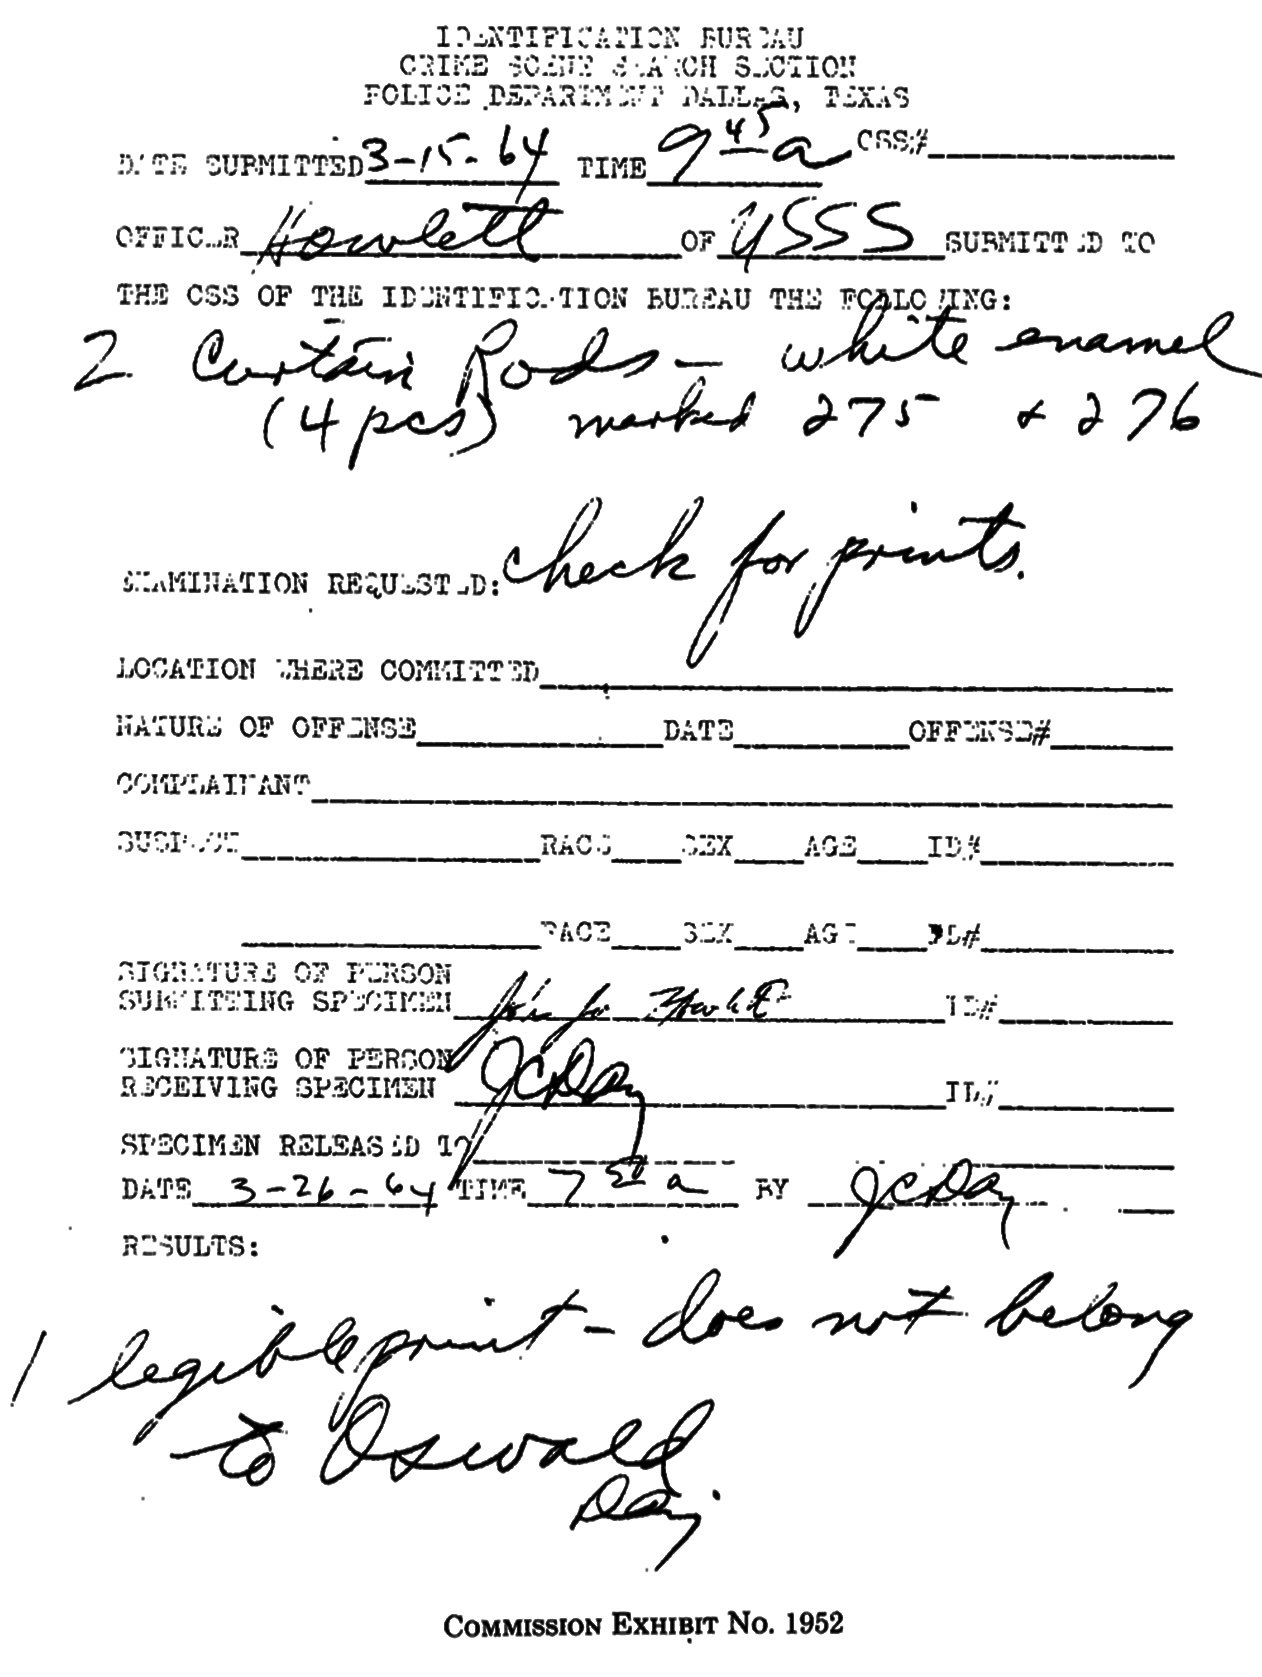 IDENTIFICATION BUREAU
CRIME SCENE SEARCH SECTION
POLICE DEPARTMENT DALLAS, TEXAS
DATE SUBMITTED 3-15-64 TIME 9 45 a CSS#
OFFICER Howlett OF USSS SUBMITTED TO
THE CSS OF THE IDENTIFICATION BUREAU THE FOLLOWING:
2 Curtain Rods - white enamel
(4 pcs) marked 275 & 276
EXAMINATION REQUESTED: check for prints.
LOCATION WHERE COMMITTED
NATURE OF OFFENSE DATE OFFENSE#
COMPLAINANT
SUSPECT RACE SEX AGE ID#
RACE SEX AGE ID#
SIGNATURE OF PERSON
SUBMITTING SPECIMEN Howlett ID#
SIGNATURE OF PERSON
RECEIVING SPECIMEN JC Day ID#
SPECIMEN RELEASED TO
DATE 3-26-64 TIME 7 a BY JC Day
RESULTS:
1 legible print - does not belong
to Oswald
Day.
COMMISSION EXHIBIT NO. 1952